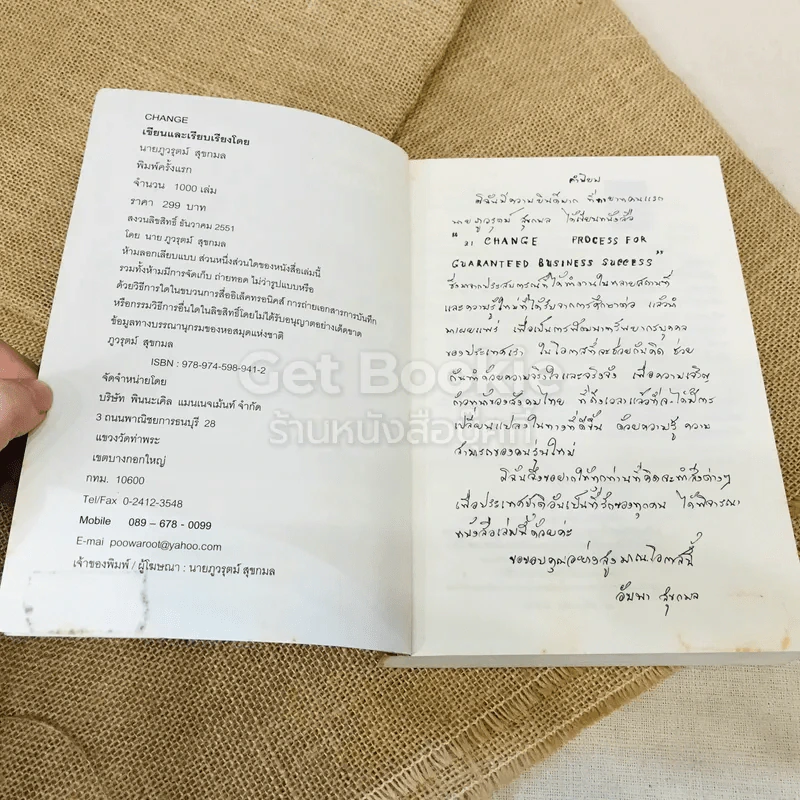 CHANGE
เขียนและเรียบเรียงโดย
นายภูวรุตม์ สุขกมล
พิมพ์ครั้งแรก
จำนวน 1000 เล่ม
ราคา 299 บาท
สงวนลิขสิทธิ์ ธันวาคม 2551
โดย นาย ภูวรุตม์ สุขกมล
ห้ามลอกเลียบแบบ ส่วนหนึ่งส่วนใดของหนังสือเล่มนี้
รวมทั้งห้ามมีการจัดเก็บ ถ่ายทอด ไม่ว่ารูปแบบหรือ
ด้วยวิธีการใดในขบวนการสื่ออิเล็คทรอนิคส์ การถ่ายเอกสารการบันทึก
หรือกรรมวิธีการอื่นใดในลิขสิทธิ์โดยไม่ได้รับอนุญาตอย่างเด็ดขาด
ข้อมูลทางบรรณานุกรมของหอสมุดแห่งชาติ
ภูวรุตม์ สุขกมล
ISBN : 978-974-598-941-2
จัดจำหน่ายโดย
บริษัท พินนะเคิล แมนเนจเม้นท์ จำกัด
3 ถนนพาณิชยการธนบุรี 28
แขวงวัดท่าพระ
เขตบางกอกใหญ่
กทม. 10600
Tel/Fax 0-2412-3548
Mobile 089 – 678 - 0099
E-mai poowaroot@yahoo.com
เจ้าของพิมพ์ / ผู้โฆษณา : นายภูวรุตม์ สุขกมล
คำนิยม
ดิฉันมีความยินดีมาก ที่ทายาทคนแรก
นายภูวรุตม์ สุขกมล ได้เขียนหนังสือ
" 21 CHANGE PROCESS FOR
GUARANTEED BUSINESS SUCCESS"
ซึ่งมาจากประสบการณ์ที่ได้ทำงานในหลายสถานที่
และความรู้ใหม่ที่ได้รับจากการศึกษาต่อ แล้วนำ
มาเผยแพร่ เพื่อเป็นการพัฒนาทรัพยากรบุคคล
ของประเทศเรา ในโอกาสที่จะช่วยกันคิด ช่วย
กันทำด้วยความจริงใจและจริงจัง เพื่อความเจริญ
ก้าวหน้าของสังคมไทย ที่ถึงเวลาแล้วที่จะได้มีการ
เปลี่ยนแปลงในทางที่ดีขึ้น ด้วยความรู้ ความ
สามารถของคนรุ่นใหม่
ดิฉันจึงอยากให้ทุกท่านที่คิดจะทำสิ่งต่างๆ
เพื่อประเทศชาติอันเป็นที่รักของทุกคน ได้พิจารณา
หนังสือเล่มนี้ด้วยค่ะ
ขอขอบคุณอย่างสูงมาณโอกาสนี้
อัมพา สุขกมล
Get Bookie
ร้านหนังสือบุ๊คกี้